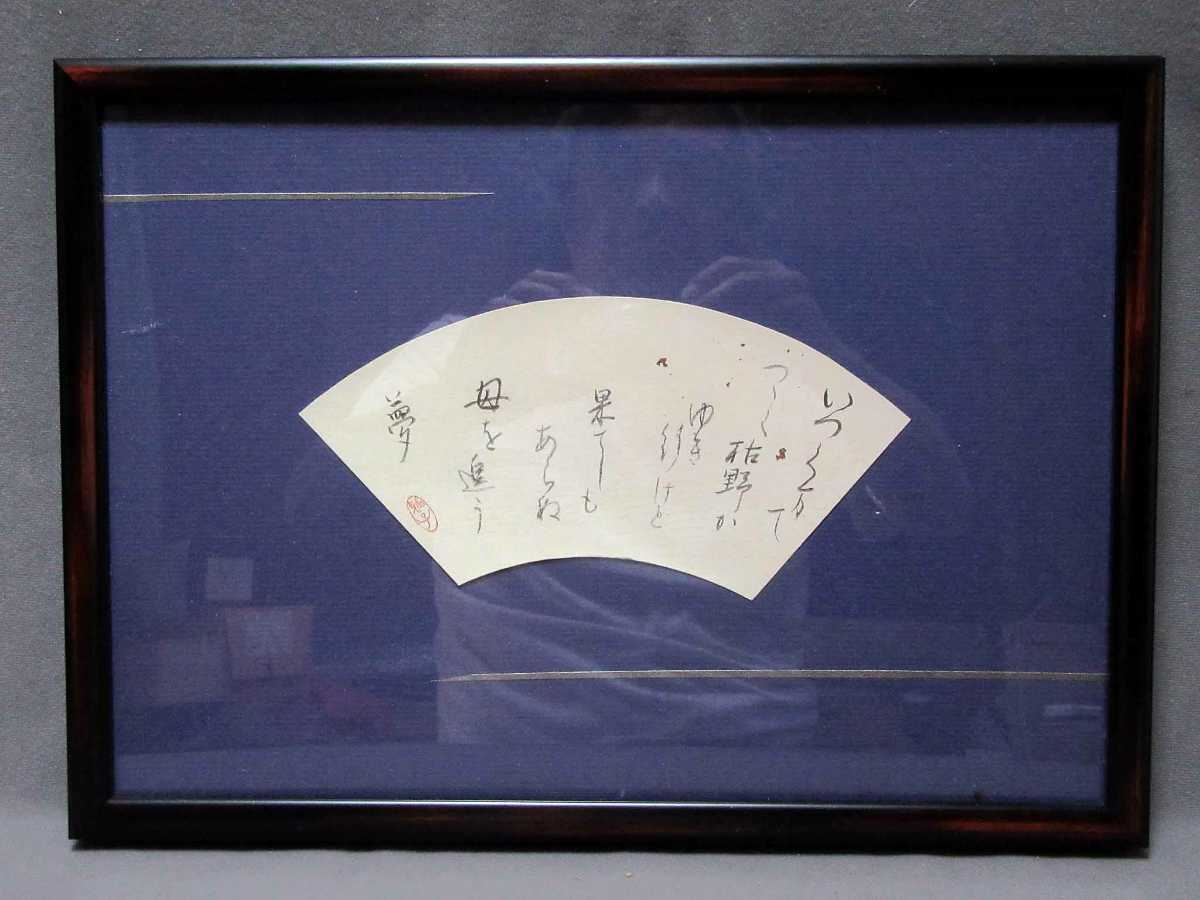 いつくま
て
つゝく
枯野か
ゆき
行けど
果てしも
あらぬ
母を追う
夢